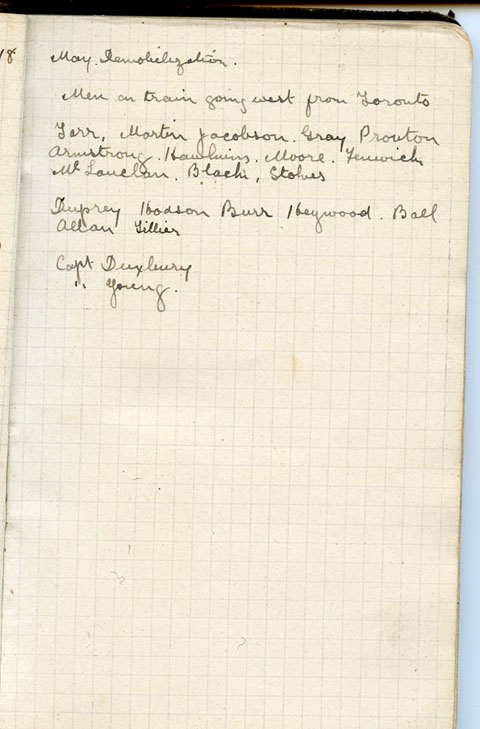 18
May. Demobilization.
Men on train going west from Toronto
Tarr, Martin Jacobson. Gray Prouton
Armstrong. Hawkins. Moore. Fenwick
Mc Lauclan. Black, Stokes
Duprey Hodson Burr Heywood. Ball
Allan Tillier
Capt Duxbury
" Young.